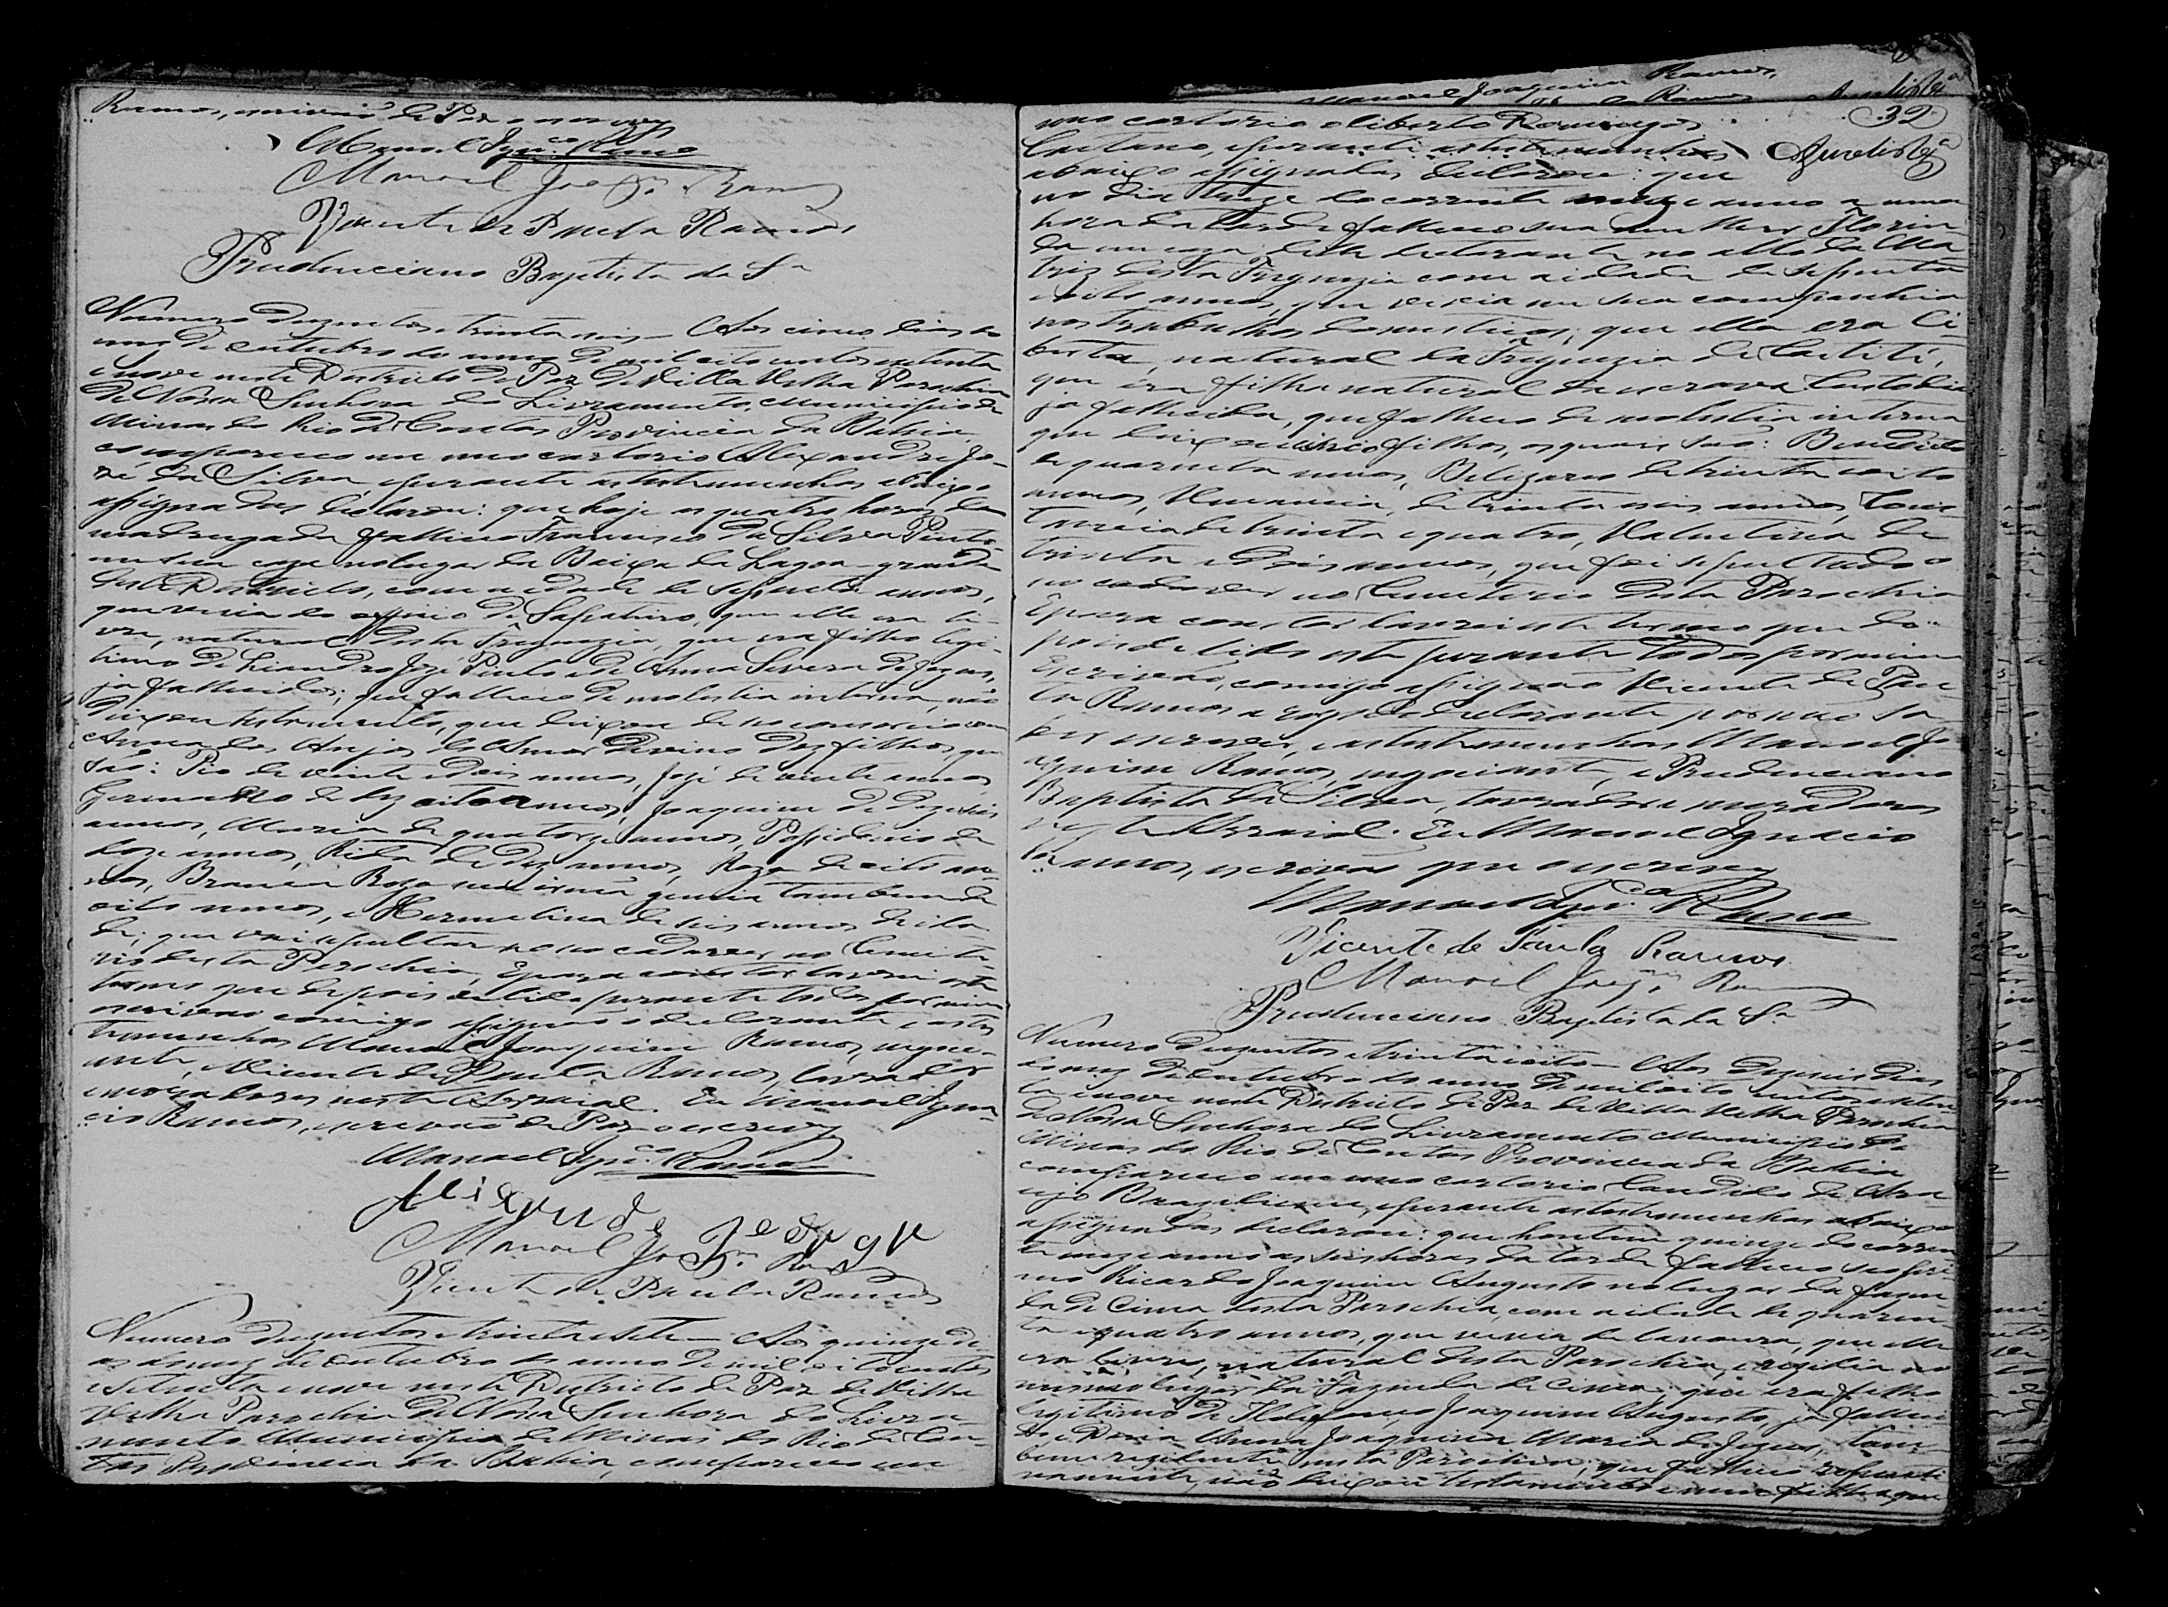 Ramos, escrivão de Paz o escrevy
Manoel Ignco Ramos
Manoel Joaqm Ramos
Vicente de Paula Ramos
Prudenciano Baptista da Sa
Numero duzentos e trinta e seis — Aos cinco dias do
mez de Outubro do anno de mil oito centos setenta
e nove neste Districto de Paz de Villa Velha Parochia
de Nossa Senhora do Livramento, Municipio de
Minas do Rio de Contas Provincia da Bahia,
compareceo em meo cartorio Alexandre Jo-
zé da Silva, e perante as testemunhas abaixo
assignadas declarou: que hoje as quatro horas da
madrugada falleceo Francisco da Silva Pinto
em sua caza no lugar da Baixa da Lagoa grande
deste Districto, com a idade de sessenta annos,
que vevia do officio de Sapateiro, que elle era li-
vre, natural desta Freguezia, que era filho legi-
timo de Liandro Jozé Pinto e de Anna Severa de Jezus,
ja fallecidos; que falleceo de molestia interna, não
deixou testamento, que deixou de seo consorcio com
Anna dos Anjos do Amor Divino dez filhos, que
são: Pio de vinte e dois annos, Jozé de vinte annos
Germano de dezoito annos, Joaquim de dezeseis
annos, Maria de quatorze annos, Possidonio de
doze annos, Rita de dez annos, Roza de oito an-
nos, Branca Roza sua irmã gemia tambem de
oito annos, e Hermelina de seis annos de ida-
de; que vai sepultar-se seo cadaver no Cemite-
rio desta Parochia, E para constar lavrei este
termo que depois de lido perante todos por mim
escrivão comigo assignão o declarante e as tes-
temunhas Manoel Joaquim Ramos, negoci-
ante, e Vicente de Paula Ramos, lavrador
e moradores neste Arraial. Eu Manoel Igna-
cio Ramos, escrivão de Paz o escrevy
Manoel Ignco Ramos
Alexandre Joze
Manoel Joaqm Ramos
Vicente de Paula Ramos
Numero duzentos e trinta e sete — Aos quinze di-
as do mez de Outubro do anno de mil e oitocentos
e setenta e nove neste Districto de Paz de Villa
Velha Parochia de Nossa Senhora do Livra-
mento Municipio de Minas do Rio de Con-
tas Provincia da Bahia, compareceo em
Manoel Joaquim Ramos,
32
meo cartorio o liberto Domingos
Caetano, e perante as testemunhas
abaixo assignadas declarou: que
no dia treze do corrente mez e anno a uma
hora da tarde falleceo sua mulher Florin-
da em caza delle declarante no alto da Ma
triz desta Freguezia com a idade de sessenta
e oito annos, que vevia em sua companhia
nos trabalhos domesticos; que ella era Li-
berta, natural da Freguezia de Caetité,
que era filha natural da escrava Custodia
ja fallecida, que falleceo de molestia interna
que deixou cinco filhos, os quaes são: Benedicto
de quarenta annos, Belizario de trinta e oito
annos, Venancia, de trinta e seis annos, Cons-
tancia de trinta e quatro, Valentina de
trinta e dois annos, que foi sepultado o
seo cadaver no Cemiterio desta Parochia
E para constar lavrei este termo que de-
pois de lido este perante todos por mim
Escrivão, comigo assignão Vicente de Pau-
la Ramos a rogo do declarante por não sa-
ber escrever, e as testemunhas Manoel Jo
aquim Ramos, negociante, e Prudenciano
Baptista da Silva, lavrador e moradores
neste Arraial. Eu Manoel Ignacio
Ramos, escrivão que o escrevy
Manoel Ignco Ramos
Vicente de Paula Ramos
Manoel Joaqm Ramos
Prudenciano Baptista da Sa
Numero duzentos e trinta e oito — Aos dezeseis dias
do mez de Outubro do anno de mil oito centos seten-
ta e nove neste Districto de Paz de Villa Velha Parochia
de Nossa Senhora do Livramento Municipio de
Minas do Rio de Contas Provincia da Bahia
compareceo em meo cartorio Candido de Ara-
ujo Brazileiro, e perante as testemunhas abaixo
assignadas declarou: que hontem quinze do corren-
te mez e anno as seis horas da tarde falleceo seo
Ricardo Joaquim Augusto no lugar da Fazen-
da de Cima desta Parochia, com a idade de quaren-
ta e quatro annos, que vevia de lavoura, que elle
era livre, natural desta Parochia, e rezidia no
mesmo lugar da Fazenda de Cima; que era filho
legitimo de Joaquim Augusto, ja falleci
do e Dona Anna Joaquina Maria de Jezus, tam-
bem rezidente nesta Parochia; que falleceo repenti
namente, não deixou testamento e nem filhos que